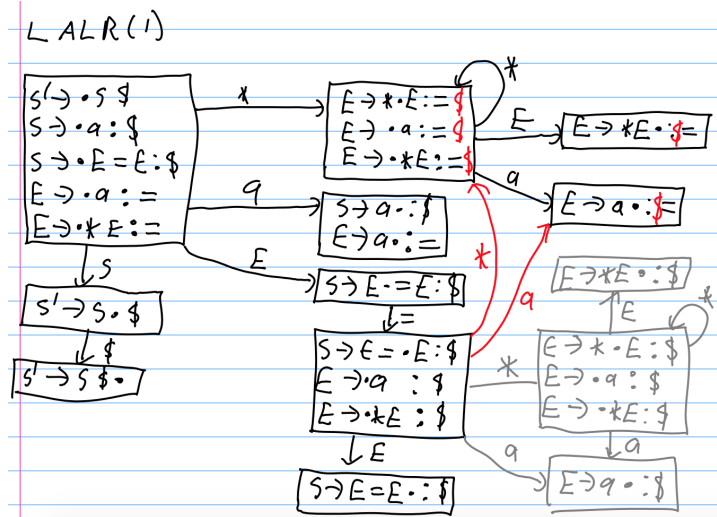 LALR(1)
S'→·S $
S→·a:$
S→·E=E:$
E→·a:=
E→·*E:=
*
E→*·E:=$
E→·a:=$
E→·*E:=$
*
E
E→*E·:$=
a
E→a·:$=
a
S→a·:$
E→a·:=
E
S→E·=E:$
S
S'→S·$
$
S'→S$·
=
S→E=·E:$
E→·a :$
E→·*E:$
*
a
E
S→E=E·:$
E→*E·:$
E
*
E→*·E:$
E→·a:$
E→·*E:$
*
a
a
E→a·:$